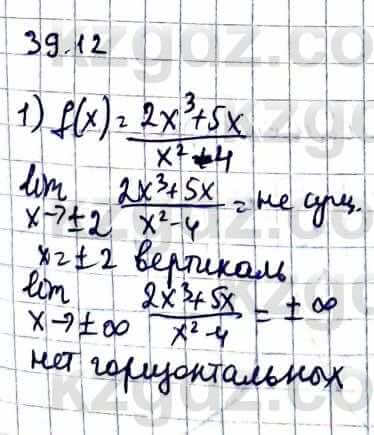 39.12
1) f(x) = (2x³+5x)/(x²-4)
lim x→±2 (2x³+5x)/(x²-4) = не сущ.
x=±2 вертикаль
lim x→±∞ (2x³+5x)/(x²-4) = ±∞
нет горизонтальных